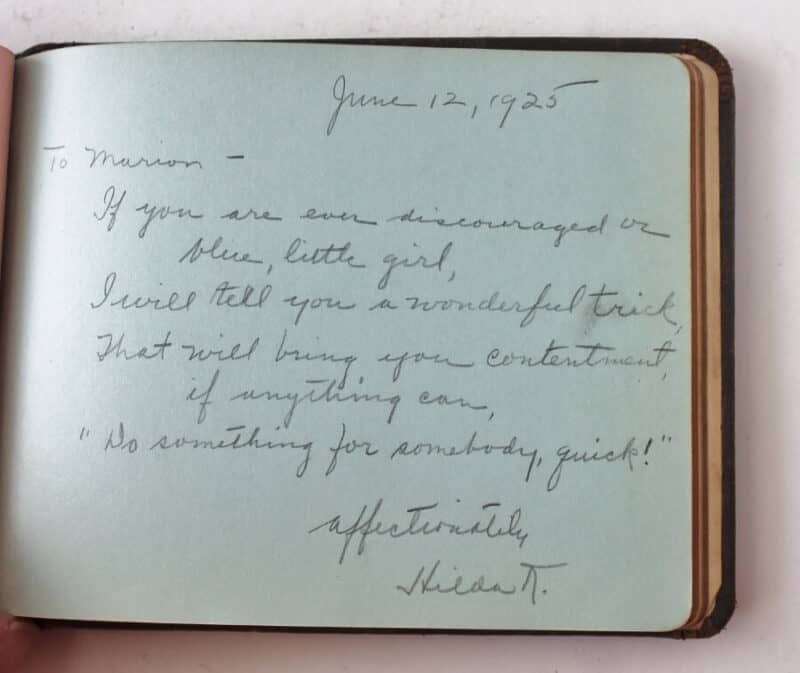 June 12, 1925
To Marion -
If you are ever discouraged or
blue, little girl,
I will tell you a wonderful trick,
That will bring you contentment,
if anything can,
"Do something for somebody, quick!"
affectionately
Hilda K.